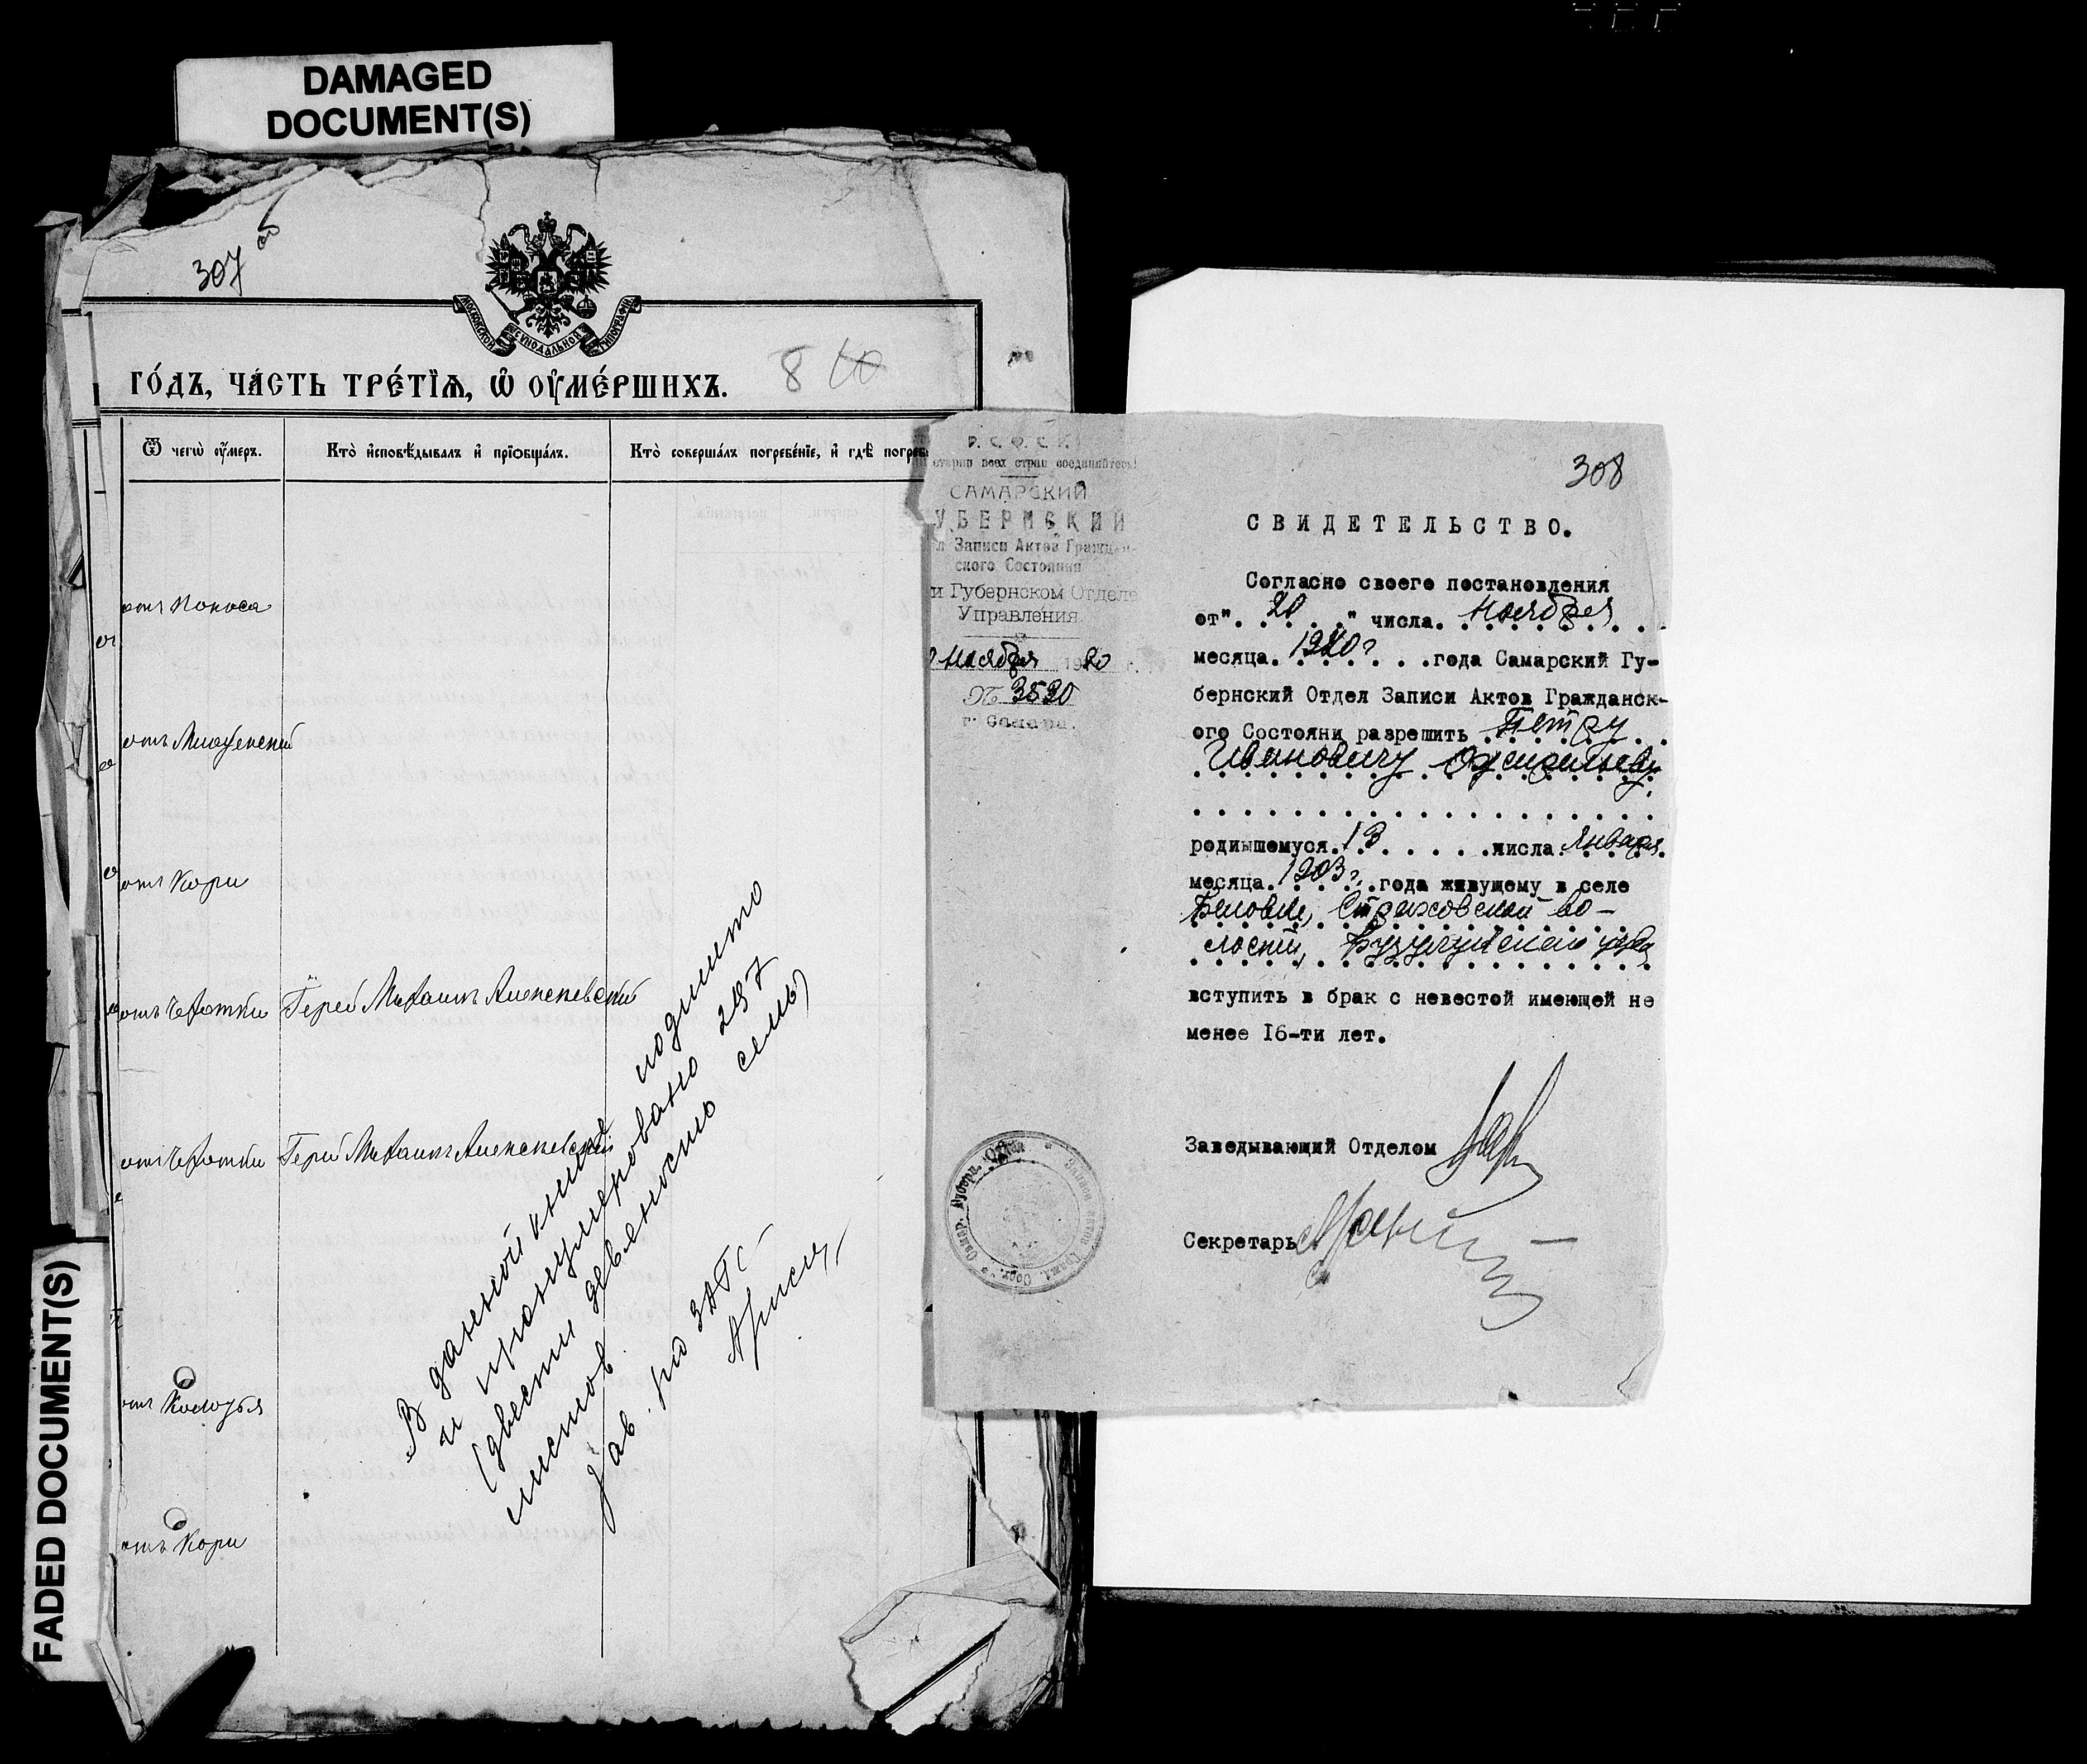 DAMAGED
DOCUMENT(S)
FADED DOCUMENT(S)
307 об
МОСКОВСКОЙ СѴНОДАЛЬНОЙ ТИПОГРАФІИ
ГО́ДЪ, ЧА́СТЬ ТРЕ́ТІѦ, Ѡ҆ ОУ҆МЕ́РШИХЪ.
8
Ѿ чегѡ̀ оу҆́меръ.
Кто̀ и҆сповѣ́дывалъ и҆ прїѡбща́лъ.
Кто̀ соверша́лъ погребе́нїе, и҆ гдѣ̀ погреб
отъ Поноса
отъ
отъ Кори
отъ Чехотки Іерей Михаилъ Алексеевский
отъ Чехотки Іерей Михаилъ Алексеевский
отъ Колотья
отъ Кори
В данной книге подшито
и пронумеровано 297
(двести девяносто семь)
листов
Зав. рай ЗАГС
Р. С. Ф. С. Р.
етарии всех стран соединяйтесь!
САМАРСКИЙ
УБЕРНСКИЙ
л Записи Актов Граждан-
ского Состояния
и Губернском Отделе
Управления
ноября 1920 г.
№ 3530
г. Самара.
308
СВИДЕТЕЛЬСТВО.
Согласно своего постановления
от". 20 ." числа. Ноября
месяца. 1920 г . . .года Самарский Гу-
бернский Отдел Записи Актов Гражданск-
ого Состояни разрешить Петру
Ивановичу
родившемуся. 13 . . . . .числа. Января.
месяца. 1903 г. . .года живущему в селе
Беловке, Страховской во-
лости, Бузулукского уезда
вступить в брак с невестой имеющей не
менее 16-ти лет.
Заведывающий Отделом
Секретарь
Самар. Губерн. Отдел * Записи актов Гражд. Сост. *